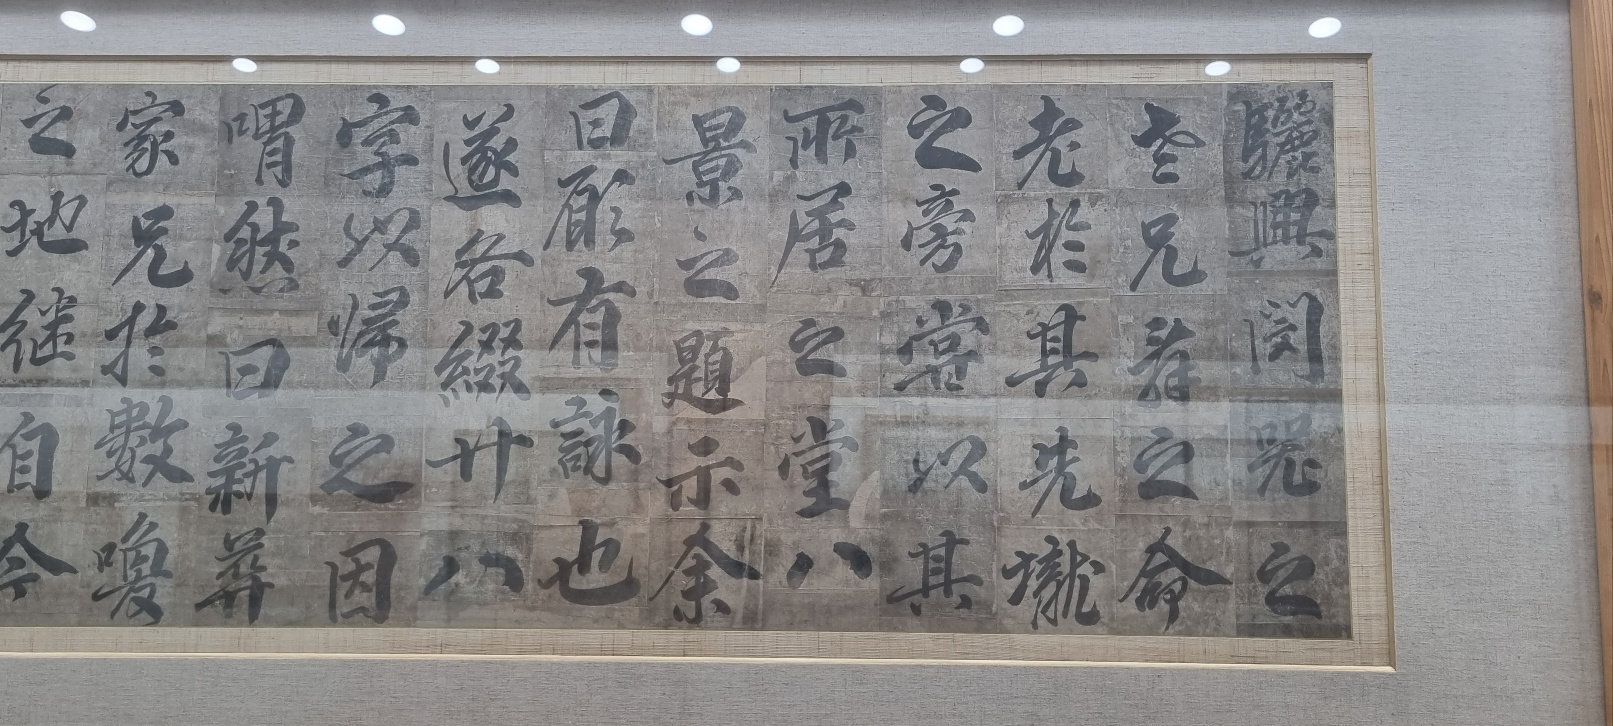 驪興閔之
兄之命
老於其先壠
之旁嘗以其
所居之堂八
景之題示余
曰願有詠也
遂各綴廿八
字以帰之因
喟然曰新葬
家兄於數喚
之地继自今